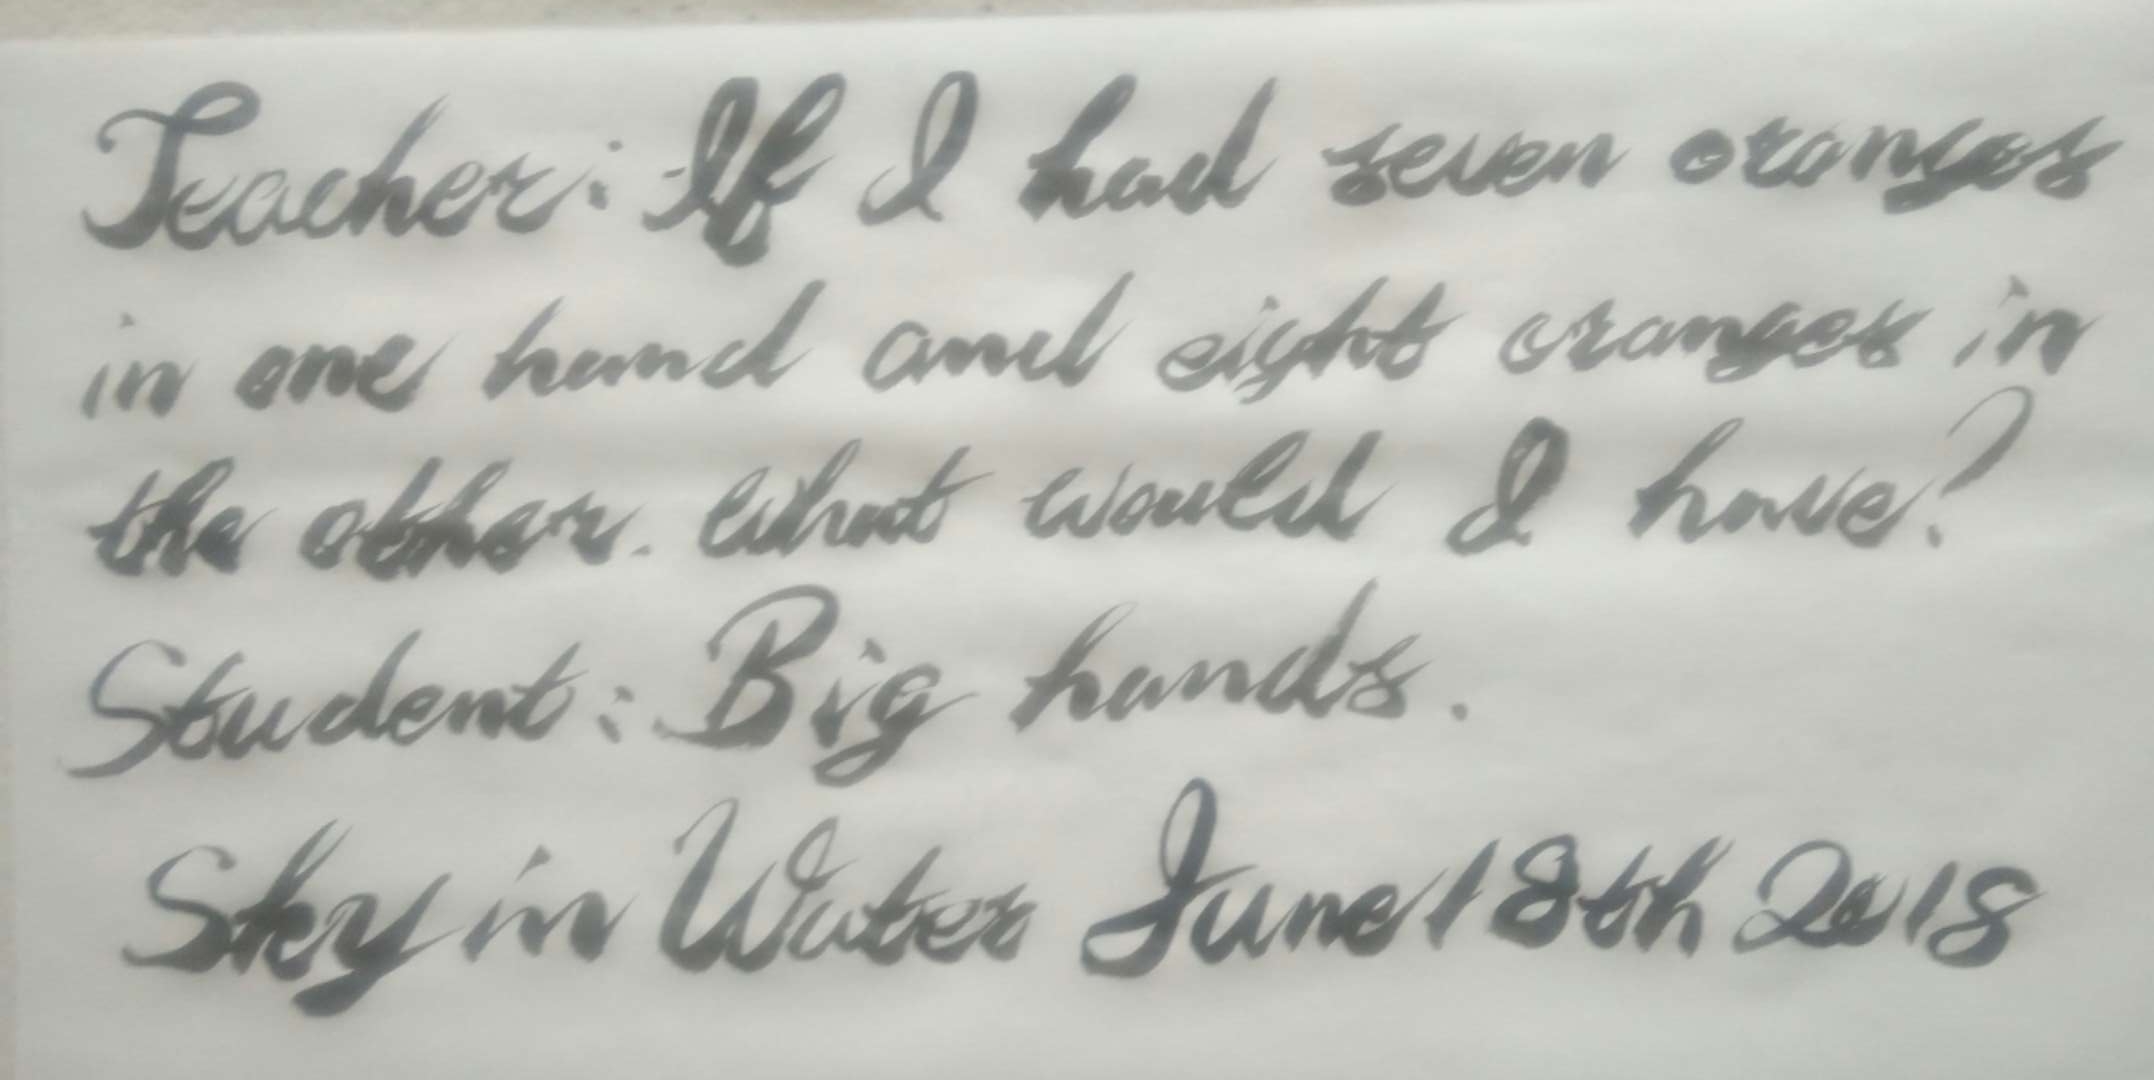 Teacher: If I had seven oranges
in one hand and eight oranges in
the other. What would I have?
Student: Big hands.
Sky in Water June 18th 2018